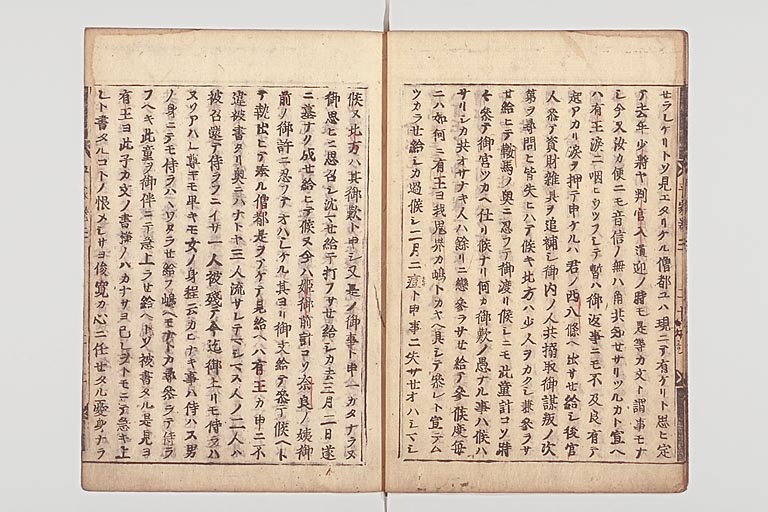 セラレケリトソ見エタリケル僧都ユハ現ニテ有ケリト思ヒ定
テ去年少将ヤ判官入道迎ノ時モ是等カ文ト謂事モナ
シ今又汝カ便ニモ音信ノ無ハ角共知セサリツルカト宣ヘ
ハ有王涙ニ咽ヒウツフシテ暫ハ御返事ニモ不及良有テ
起アカリ涙ヲ押テ申ケルハ君ノ西八條ヘ出サセ給シ後官
人参テ資財雑具ヲ追補シ御内ノ人共搦取御謀叛ノ次
第ヲ尋問ヒ皆失ヒハテ候キ北方ハ少人ヲカクシ兼参ラサ
セ給ヒテ鞍馬ノ奥ニ忍フテ御渡リ候シニモ此童計コソ時
々参テ御宮ツカヘ仕リ候ナリ何カ御歎ノ愚ナル事ハ候ハ
サリシカ共オサナキ人ハ餘リニ戀参ラサセ給テ参候度毎
ニハ如何ニ有王ヨ我鬼界カ嶋トカヤヘ具シテ参レト宣テム
ツカラセ給シカ過候シ二月ニ痘ト申事ニ失サセオハシマシ
候又北方ハ其御歎ト申シ又是ノ御事ト申一カタナラヌ
御思ヒニ思召シ沈マセ給テ打フサセ給シカ去三月二日遂
ニ墓ナク成セ給ヒテ候又今ハ姫御前計コソ奈良ノ姨御
前ノ御許ニ忍フテオハシケル其ヨリ御文給テ参テ候ヘト
テ執出ヒテ奉ル僧都是ヲアケテ見給ヘハ有王カ申ニ不
違被書タリ奥ニハナトヤ三人流サレテマシマス人ノ二人ハ
被召還テ侍ラフニイサ一人被残テ今迄御上リモ侍ラハ
ヌソアハレ尊キモ卑キモ女ノ身程云カヒナキ事ハ侍ハス男
ノ身ニテモ侍ラハヽワタラセ給フ嶋ヘモナトカ尋参ラテ侍ラ
フヘキ此童ヲ御伴ニテ急上ラセ給ヘトソ被書タル是見ヨ
有王ヨ此子カ文ノ書様ノハカナサヨ己レヲトモニテ急キ上
レト書タルコトノ恨メシサヨ俊寛カ心ニ任セタル憂身ナラ